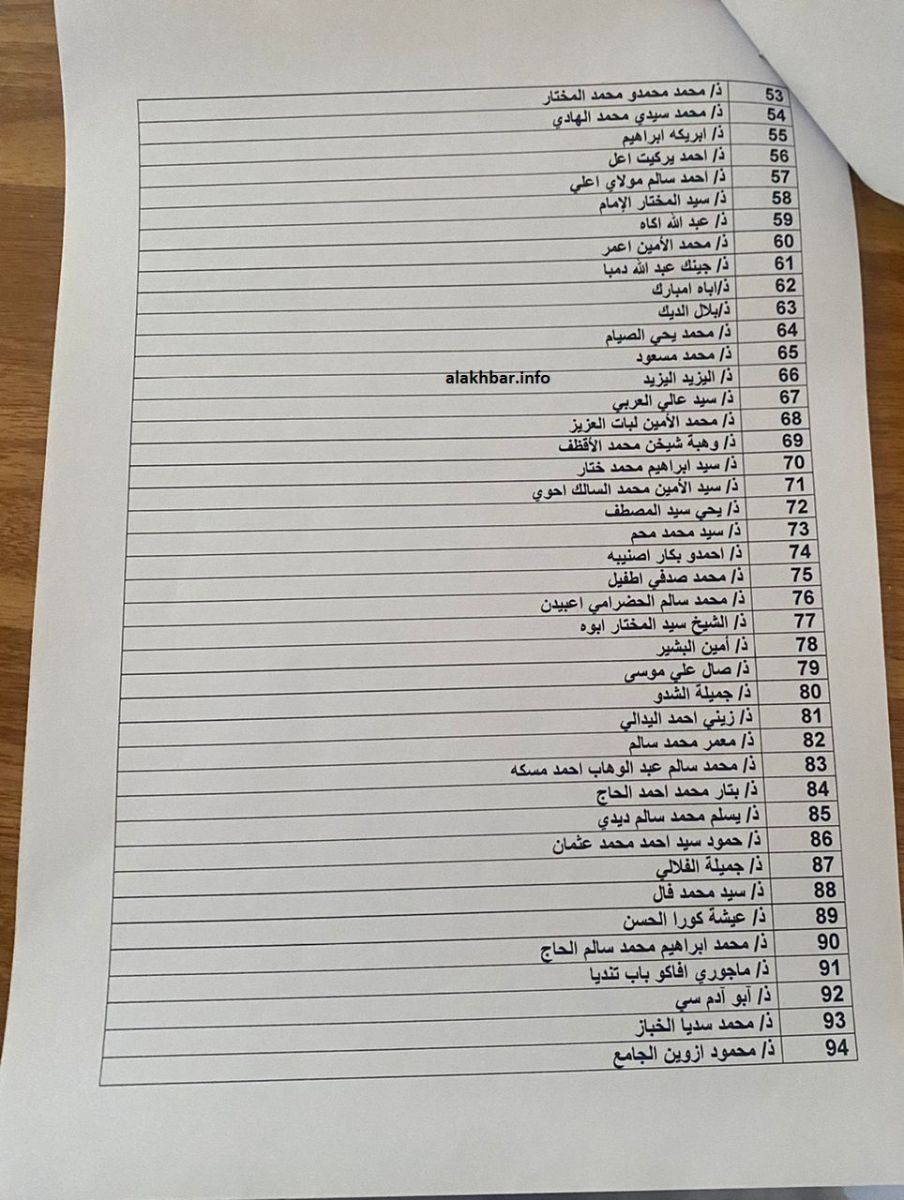 53 ذ/ محمد محمدو محمد المختار
54 ذ/ محمد سيدي محمد الهادي
55 ذ/ ابريكه ابراهيم
56 ذ/ احمد يركيت اعل
57 ذ/ احمد سالم مولاي اعلي
58 ذ/ سيد المختار الإمام
59 ذ/ عبد الله اكاه
60 ذ/ محمد الأمين اعمر
61 ذ/ جينك عبد الله دمبا
62 ذ/اباه امبارك
63 ذ/بلال الديك
64 ذ/ محمد يحي الصيام
65 ذ/ محمد مسعود
66 ذ/ اليزيد اليزيد
alakhbar.info
67 ذ/ سيد عالي العربي
68 ذ/ محمد الأمين لبات العزيز
69 ذ/ وهبة شيخن محمد الأقظف
70 ذ/ سيد ابراهيم محمد ختار
71 ذ/ سيد الأمين محمد السالك احوي
72 ذ/ يحي سيد المصطف
73 ذ/ سيد محمد محم
74 ذ/ احمدو بكار اصنيبه
75 ذ/ محمد صدفي اطفيل
76 ذ/ محمد سالم الحضرامي اعبيدن
77 ذ/ الشيخ سيد المختار ابوه
78 ذ/ أمين البشير
79 ذ/ صال علي موسى
80 ذ/ جميلة الشدو
81 ذ/ زيني احمد اليدالي
82 ذ/ معمر محمد سالم
83 ذ/ محمد سالم عبد الوهاب احمد مسكه
84 ذ/ بتار محمد احمد الحاج
85 ذ/ يسلم محمد سالم ديدي
86 ذ/ حمود سيد احمد محمد عثمان
87 ذ/ جميلة الفلالي
88 ذ/ سيد محمد فال
89 ذ/ عيشة كورا الحسن
90 ذ/ محمد ابراهيم محمد سالم الحاج
91 ذ/ ماجوري افاكو باب تنديا
92 ذ/ آبو آدم سي
93 ذ/ محمد سديا الخباز
94 ذ/ محمود ازوين الجامع